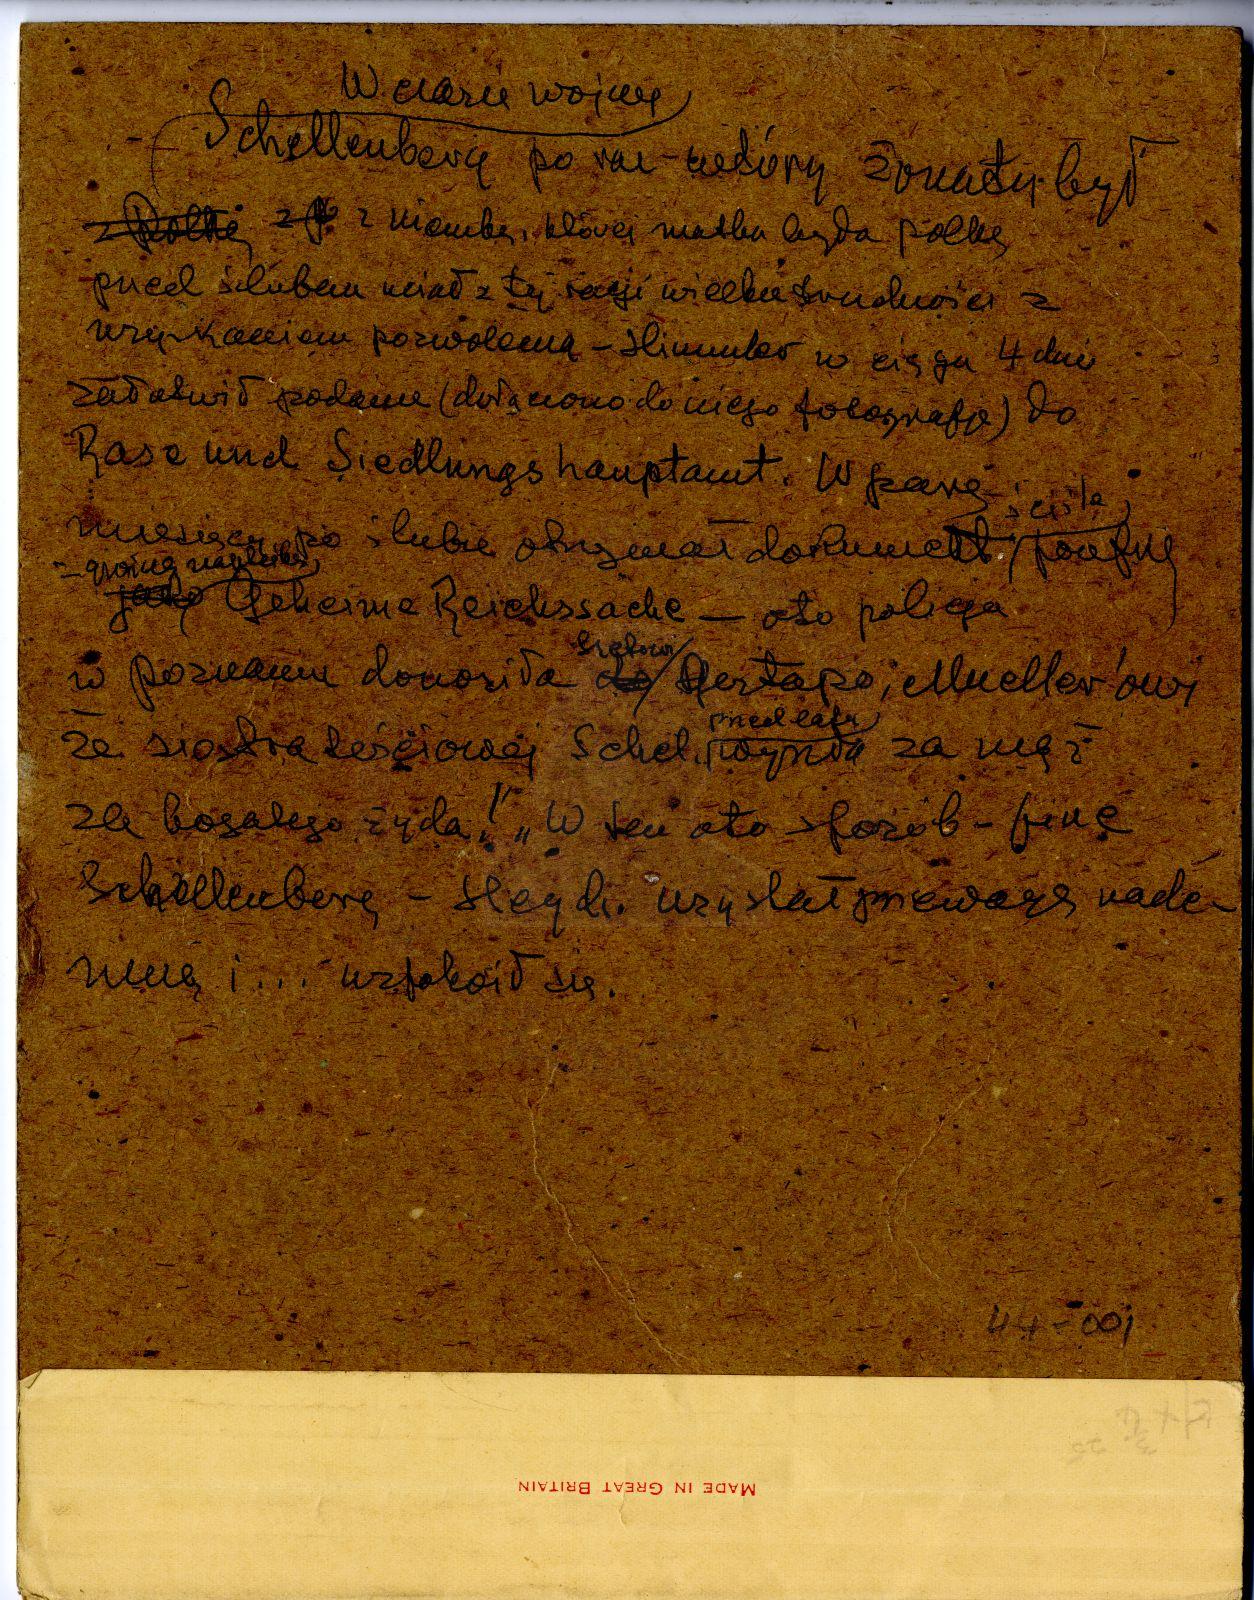 W czasie wojny
Schellenberg po raz wtóry żonaty był
z Polką z P z niemką, której matka była polką
przed ślubem miał z tej racji wielkie trudności z
uzyskaniem pozwolenia – Himmler w ciągu 4 dni
załatwił podanie (dołączono do niego fotografję) do
Rase und Siedlungshauptamt. W parę
ściśle
miesięcy po ślubie otrzymał dokument poufny
jako Geheime Reichssache — oto policja
szefowi
w poznaniu donosiła do Gestapo, Mueller'owi
przed laty
że siostra teściowej Schel. wyszła za mąż
za bogatego żyda! „W ten oto sposób – pisze
Schellenberg – Heydr. uzyskał przewagę nade-
mną i ... uspokoił się.
44-001
MADE IN GREAT BRITAIN